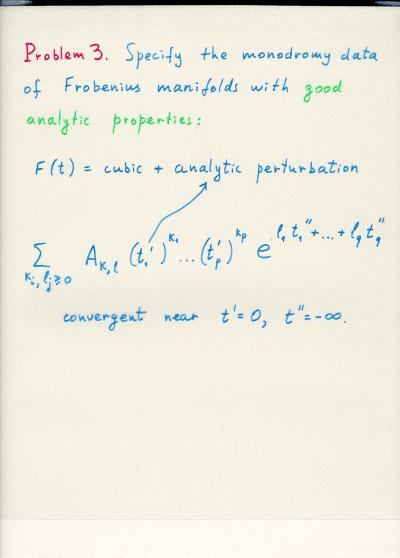 Problem 3. Specify the monodromy data
of Frobenius manifolds with good
analytic properties:
F(t) = cubic + analytic perturbation
∑ A_{k,l} (t_1')^{k_1} ... (t_p')^{k_p} e^{l_1 t_1'' + ... + l_q t_q''}
k_i, l_j ≥ 0
convergent near t' = 0, t'' = -∞.